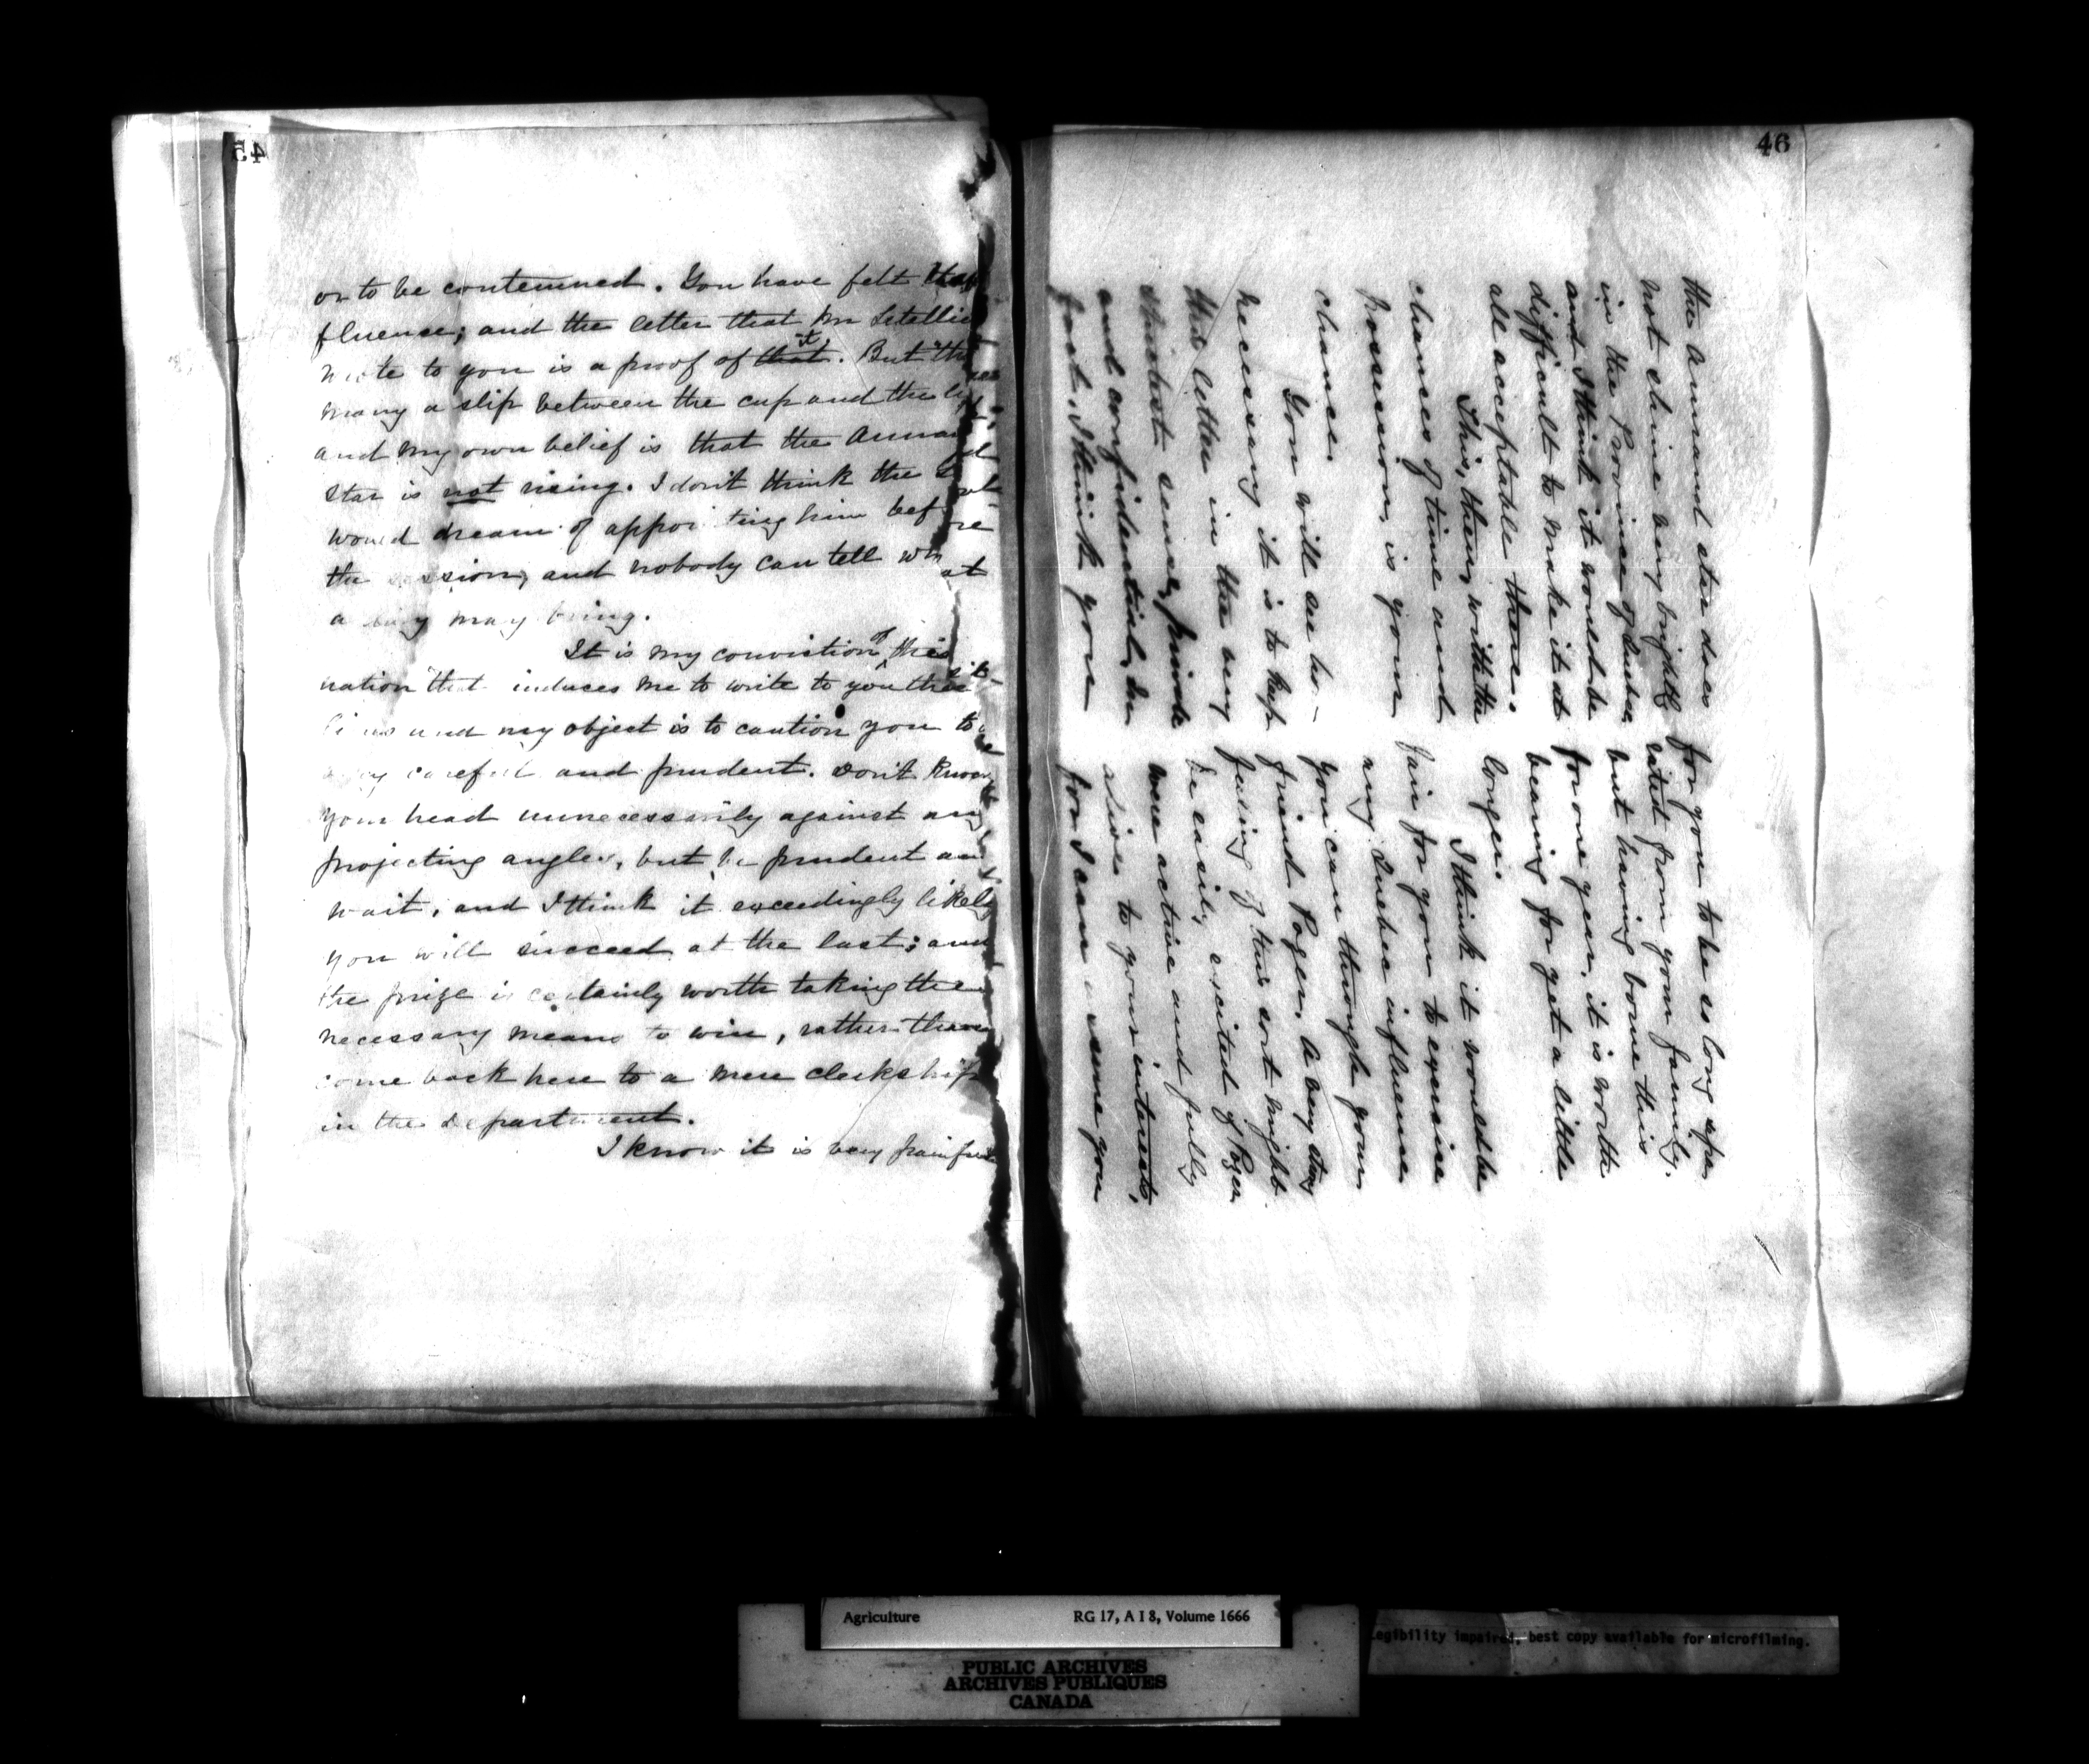 45
or to be contemned. You have felt that
fluence; and the letter that Mr Letellie
wrote to you is a proof of that it. But "the
many a slip between the cup and the lip
and my own belief is that the Annand
star is not rising. I don't think the Govt
would dream of appointing him before
the session, and nobody can tell what
a day may bring.
It is my conviction of this sit-
uation that induces me to write to you these
lines and my object is to caution you to be
very careful and prudent. Don't knock
your head unnecessarily against any
projecting angles, but be prudent and
wait, and I think it exceedingly likely
you will succeed at the last; and
the prize is certainly worth taking the
necessary means to win, rather than
come back here to a mere clerkship
in the Department.
I know it is very painful
46
for you to be so long sepa
rated from your family.
but having borne this
for one year, it is worth
bearing for yet a little
longer.
I think it would be
fair for you to exercise
any Quebec influence
you can through your
friend Pozer. A very strong
feeling of this sort might
be easily excited if Pozer
were active and fully
alive to your interests,
for I can assure you
the Annand star does
not shine very brightly
in the Province of Quebec
and I think it would be
difficult to make it at
all acceptable there.
This, then, with the
chances of time and
possession, is your
chance.
You will see ho-
necessary it is to keep
this letter in the very
strictest sense, private
and confidential. In
fact, I think you
Agriculture RG 17, A I 8, Volume 1666
Legibility impaired, best copy available for microfilming.
PUBLIC ARCHIVES
ARCHIVES PUBLIQUES
CANADA